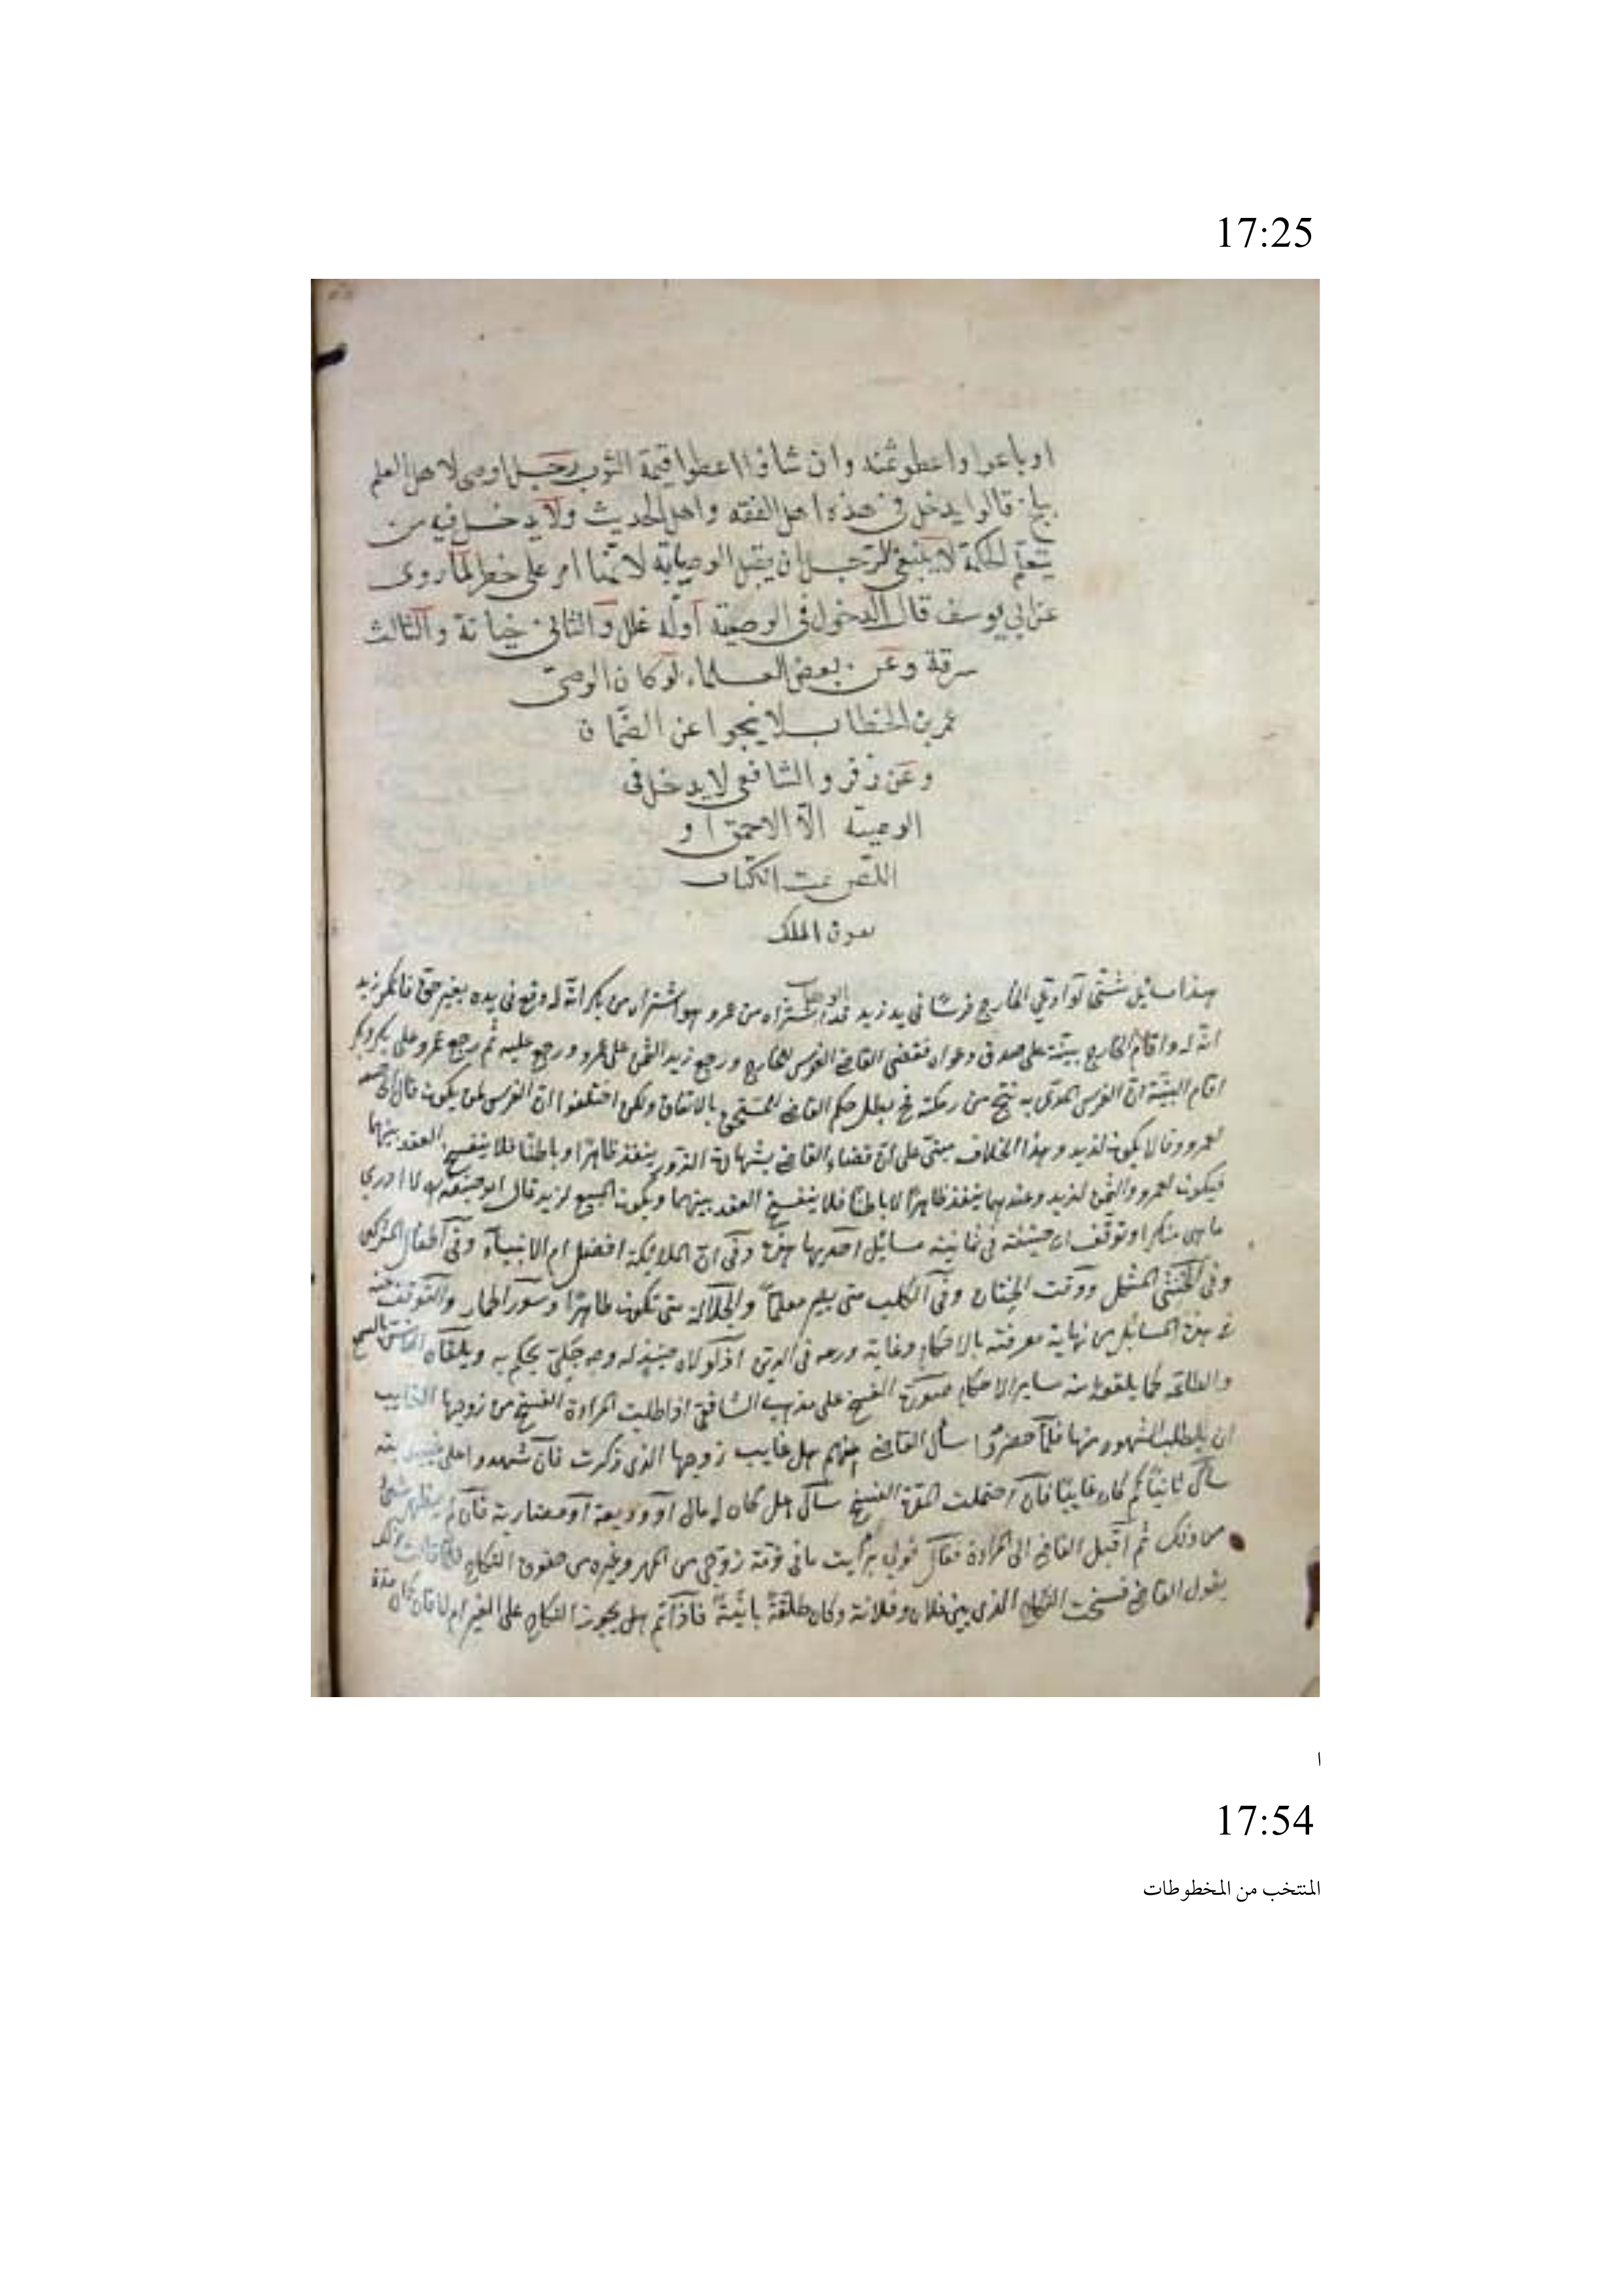 17:25
اوباعوا واعطوا ثمنه وان شاؤا اعطوا قيمة الثوب رجل اوصى لاهل العلم
ببلخ قالوا يدخل في هذه اهل الفقه واهل الحديث ولا يدخل فيه من
يتعلم الحكمة لا ينبغي للرجل ان يقبل الوصاية لانها امر على خطر لما روى
عن ابي يوسف قال الدخول في الوصية اوله غلل والثاني خيانة والثالث
سرقة وعن بعض العلماء لو كان الوصى
عمر بن الخطاب لا ينجوا عن الضمان
وعن زفر والشافعي لا يدخل في
الوصية الا الاحمق او
اللص تمت الكتاب
بعون الملك
هذا مسائل شتى لو ادعى الخارج فرسا في يد زيد قد اشتراه من عمرو هو اشتراه من بكر انه له وقع في يده بغير حق فانكر زيد
انه له واقام الخارج بينة على صدق دعواه فقضى القاضي الفرس للخارج ورجع زيد الثمن على عمرو ورجع عليه ثم رجع عمرو على بكر
اقام البينة ان الفرس المدعى به نتج من رمكته يبطل حكم القاضي للمستحق بالاتفاق ولكن اختلفوا ان الفرس لمن يكون قال
لعمرو وقالا يكون لزيد وهذا الخلاف مبنى على ان قضاء القاضي بشهادة الزور ينفذ ظاهرا وباطنا فلا ينفسخ العقد بينهما
فيكون لعمرو والثمن لزيد وعندهما ينفذ ظاهرا لا باطنا فلا ينفسخ العقد بينهما ويكون المبيع لزيد قال ابو حنيفة لا ادري
ما هي وتوقف في ثمانية مسائل احديها هذه وفي ان الملائكة افضل ام الانبياء وفي اطفال المشركين
وفي الخنثى المشكل ووقت الختان وفي الكلب متى يصير معلما والجلالة متى تكون طاهرا وسور الحمار والتوقف
هذه المسائل من نهاية معرفته بالاحكام وغاية ورعه في الدين
سائر الاحكام صورة الفسخ على مذهب الشافعي اذا طلبت المراة الفسخ من زوجها الغايب
ان يطلب الشهود منها فلما حضروا سأل القاضي عنهم هل غايب زوجها الذي ذكرت فان شهدوا على
سأل ثانيا كم كان غايبا فان احتملت المدة الفسخ سأل هل كان له مال او وديعة او مضاربة فان لم يظهر شئ
من ذلك ثم اقبل القاضي الى المراة فقال قولي برأيت ما في ذمة زوجي من المهر وغيره من حقوق النكاح
يقول القاضي فسخت النكاح الذي بين فلان وفلانة وكان طلقة باينة فاذا تم هل يجوز النكاح على الغير ام لا
ا
17:54
المنتخب من المخطوطات